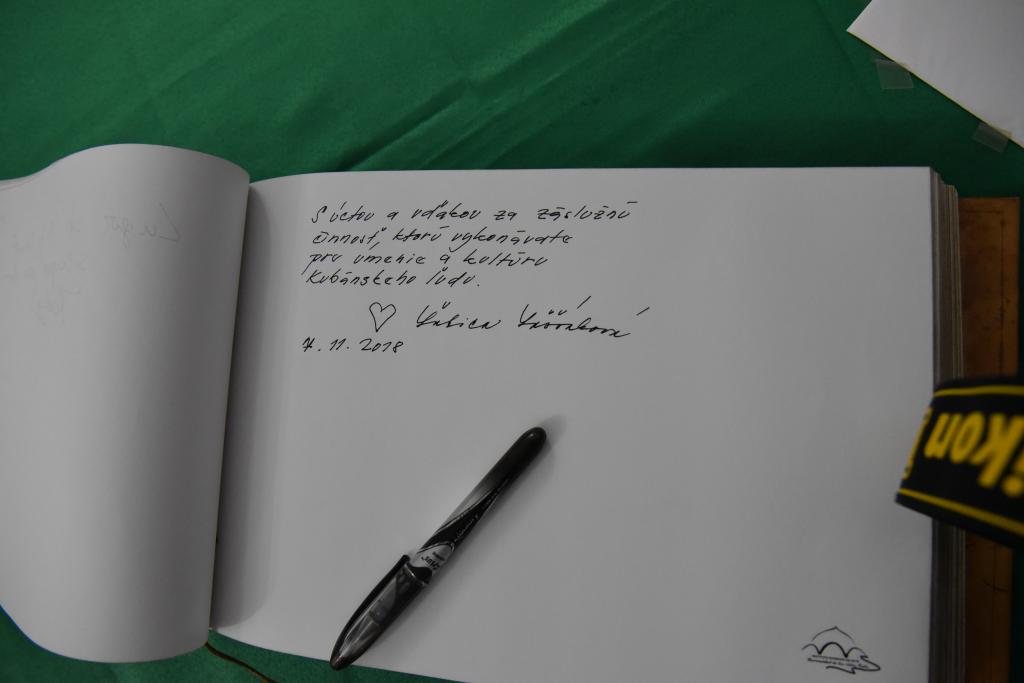 S úctou a vďakou za záslužnú
činnosť, ktorú vykonávate
pre umenie a kultúru
Kubánskeho ľudu.
Ľubica
7. 11. 2018
ikon